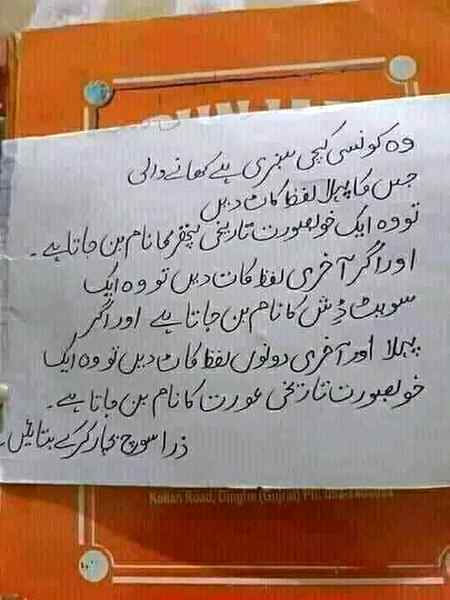 وہ کونسی کچی سبزی ہے کھانے والی
جس کا پہلا لفظ کاٹ دیں
تو وہ ایک خوبصورت تاریخی پتھر کا نام بن جاتا ہے۔
اور اگر آخری لفظ کاٹ دیں تو وہ ایک
سویٹ ڈِش کا نام بن جاتا ہے اور اگر
پہلا اور آخری دونوں لفظ کاٹ دیں تو وہ ایک
خوبصورت تاریخی عورت کا نام بن جاتا ہے۔
ذرا سوچ بچار کرکے بتائیں۔
Road, Dingha (Gujrat) Ph: